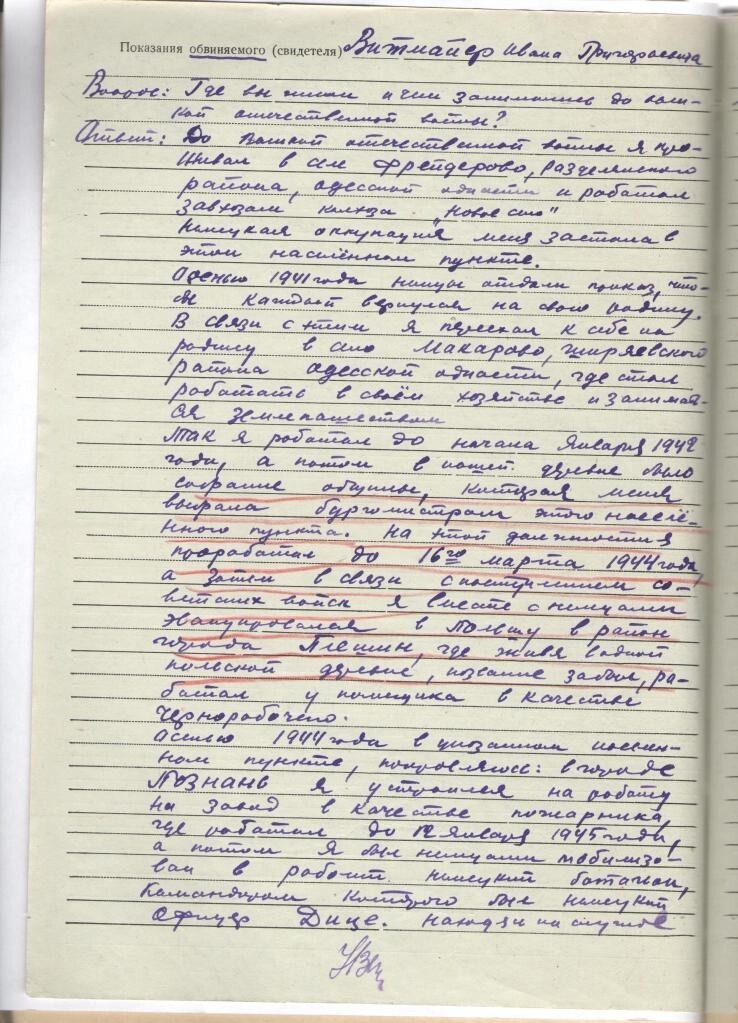 Показания обвиняемого (свидетеля) Витмайер Ивана Фридриховича
Вопрос: Где вы жили и чем занимались до вели-
кой отечественной войны?
Ответ: До Великой отечественной войны я про-
живал в селе Фрейдерово, Разделянского
района, одесской области и работал
завхозам колхоза „Новое село"
Немецкая оккупация меня застала в
этом населённом пункте.
Осенью 1941 года немцы отдали приказ, что-
бы каждый вернулся на свою родину.
В связи с этим я переехал к себе на
родину в село Макарово, Ширяевского
района одесской области, где стал
работать в своём хозяйстве и занимат-
ся землепашеством
Так я работал до начала января 1942
года, а потом в нашей деревне было
собрание общины, которая меня
выбрала бургомистром этого населё-
нного пункта. На этой должности я
проработал до 16го марта 1944 года,
а затем в связи с наступлением со-
ветских войск я вместе с немцами
эвакуировался в Польшу в район
города Плешин, где живя в одной
польской деревне, название забыл, ра-
ботал у помещика в качестве
чернорабочего.
Осенью 1944 года в указанном населен-
ном пункте, поправляюсь: в городе
Познань я устроился на работу
на завод в качестве пожарника,
где работал до 12 января 1945 года,
а потом я был немцами мобилизо-
ван в рабочий немецкий батальон,
командиром которого был немецкий
офицер Дице. Находясь на службе